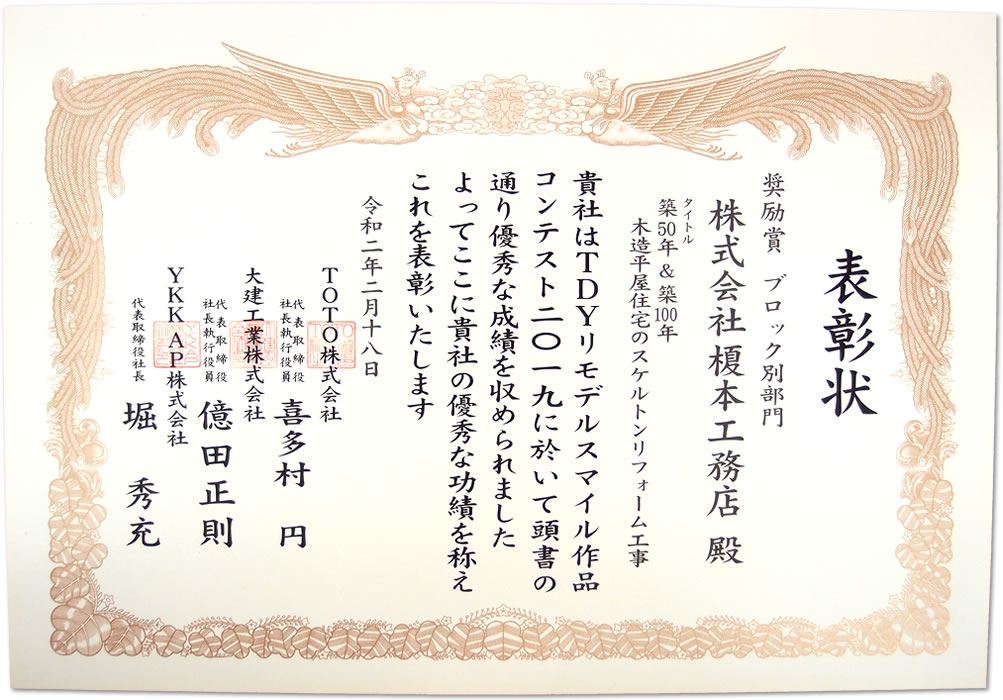 表彰状
奨励賞 ブロック別部門
株式会社榎本工務店 殿
タイトル
築50年&築100年
木造平屋住宅のスケルトンリフォーム工事
貴社はTDYリモデルスマイル作品
コンテスト二〇一九に於いて頭書の
通り優秀な成績を収められました
よってここに貴社の優秀な功績を称え
これを表彰いたします
令和二年二月十八日
TOTO株式会社
代表取締役
社長執行役員
喜多村 円
大建工業株式会社
代表取締役
社長執行役員
億田正則
YKK AP株式会社
代表取締役社長
堀 秀充